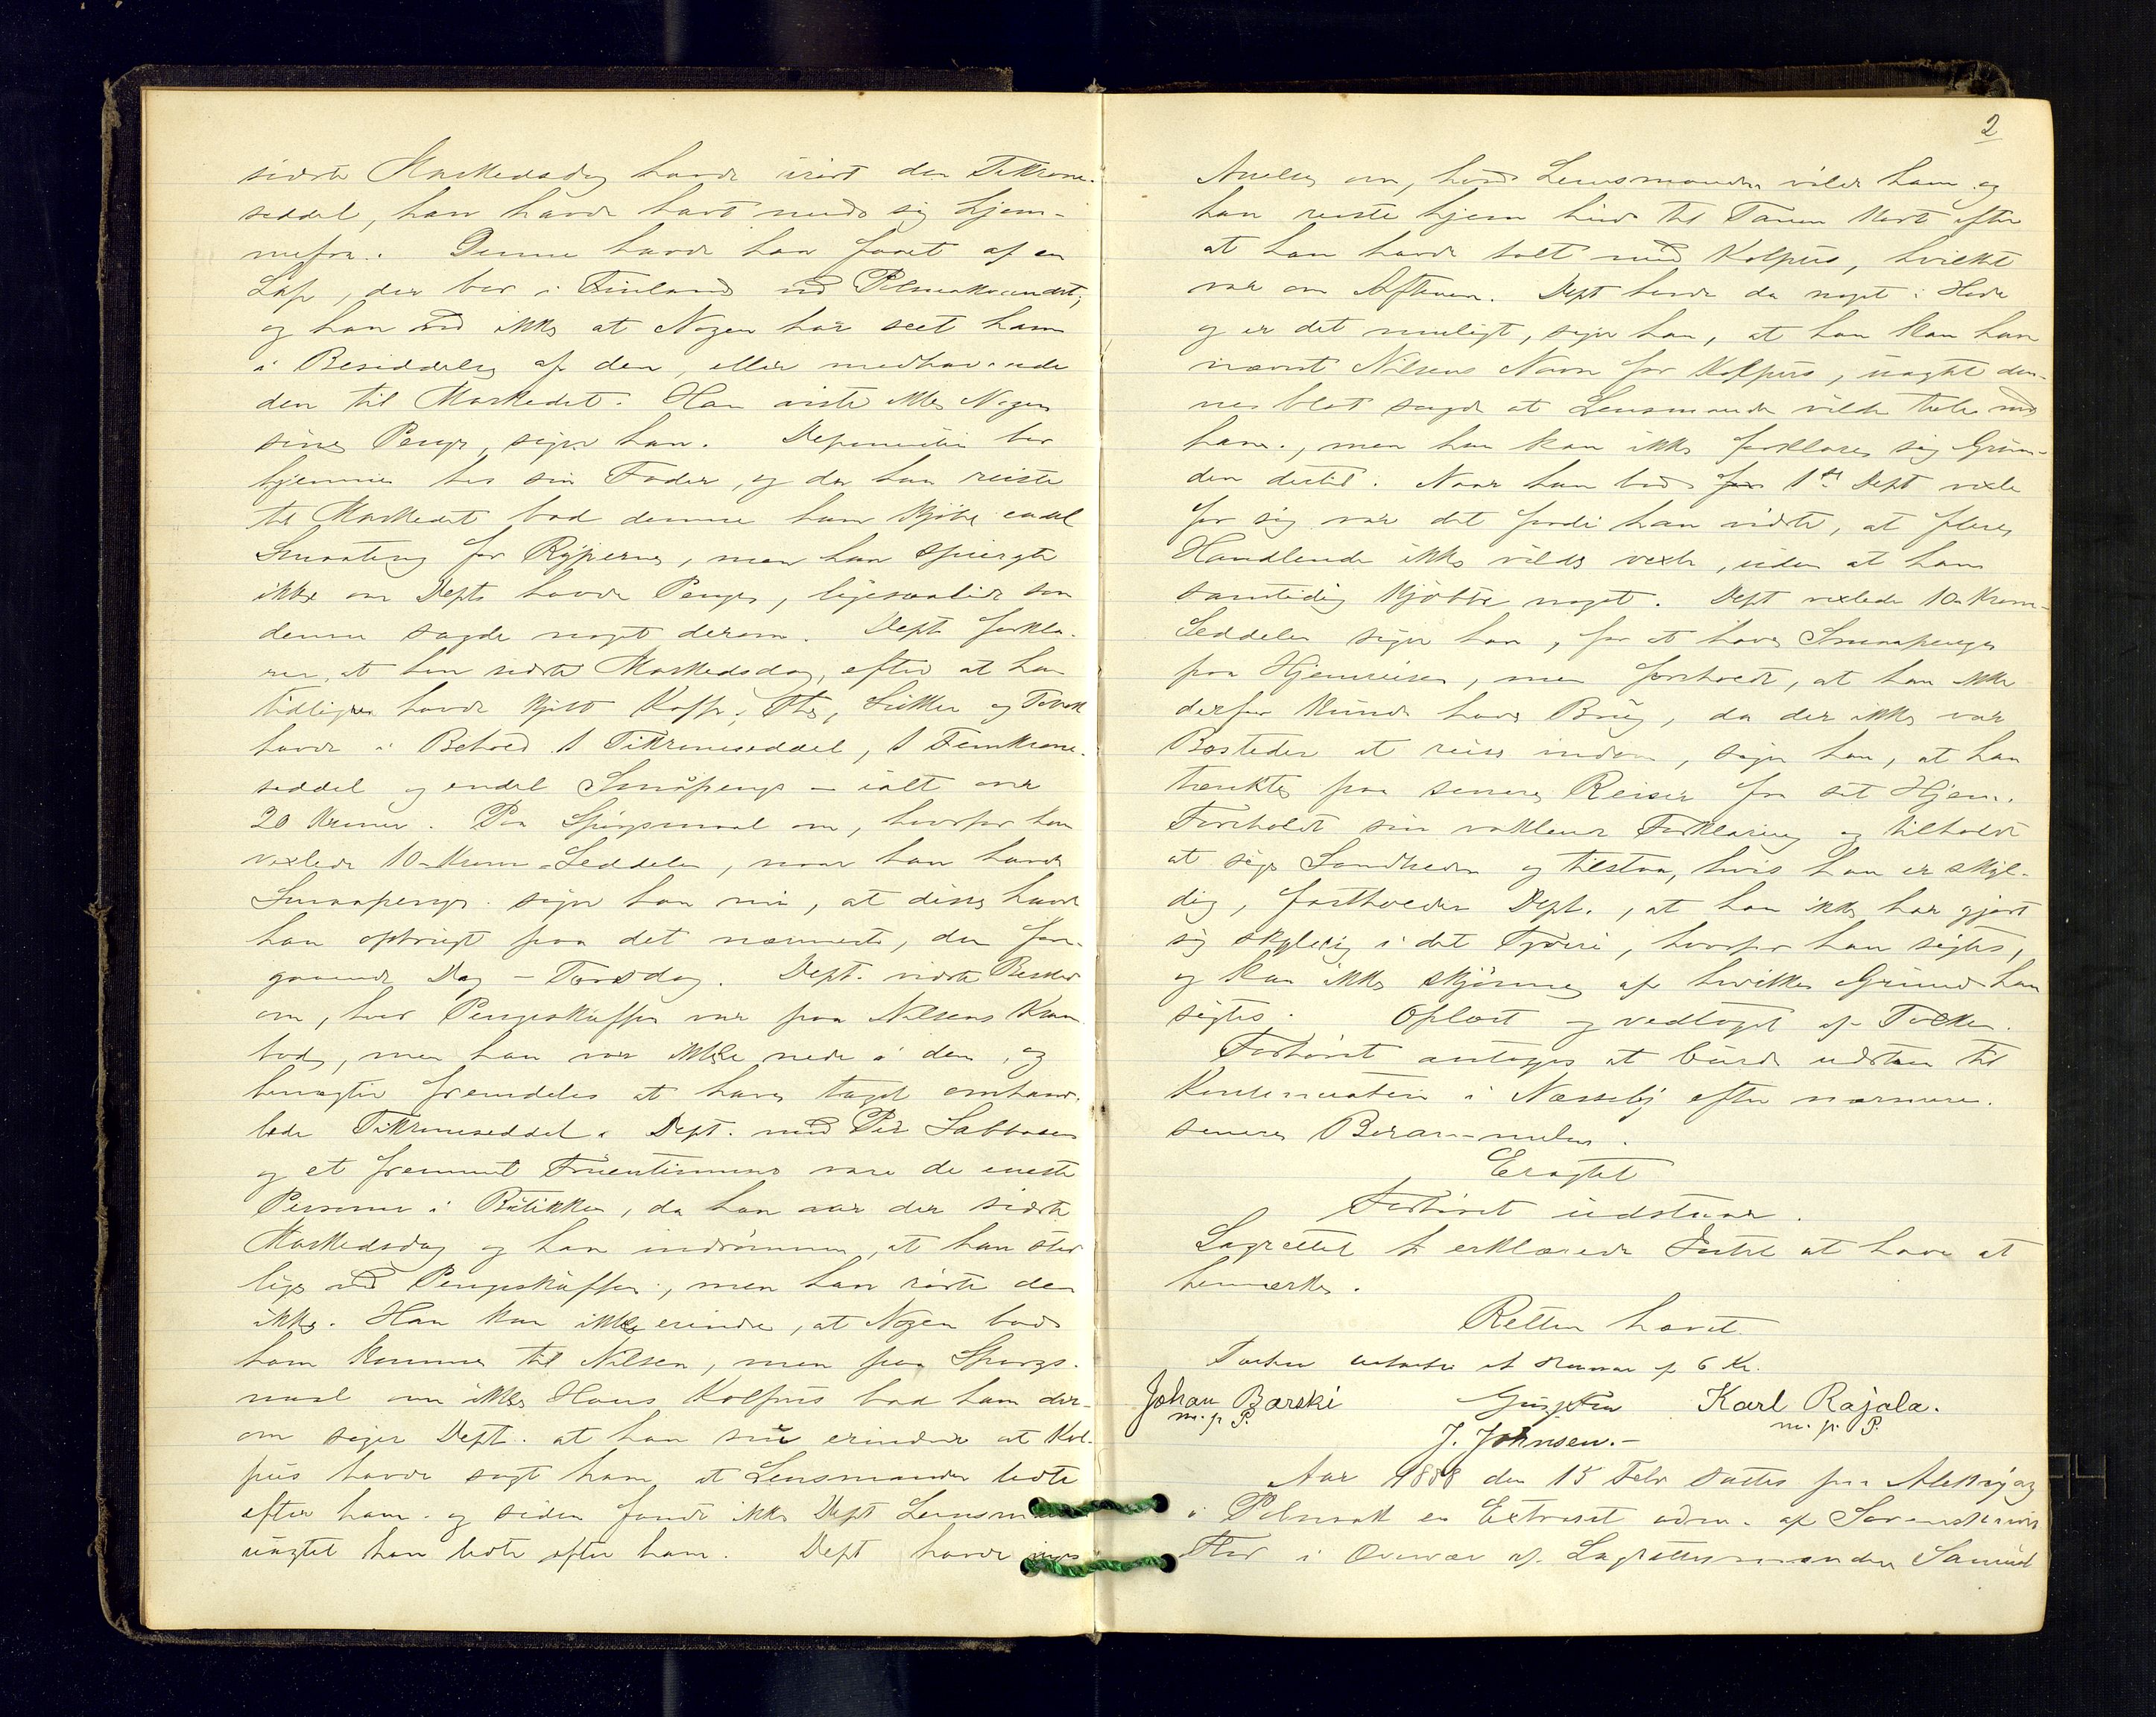 sidste Markedsdag havde vist den Tikrone-
seddel, han havde havt med sig hjem-
mefra. Denne havde han faaet af en
Lap, der bor i Finland ved Polmakvandet,
og han ved ikke at Nogen har seet ham
i Besiddelse af den, eller medhavende
den til Markedet. Han viste ikke Nogen
sine Penge, siger han. Deponenten bor
hjemme hos sin Fader, og da han reiste
til Markedet bad denne ham kjøbe endel
Smaating for Ryperne, men han spurgte
ikke om Depts havde Penge, ligesaalidt som
denne sagde noget derom. Dept forkla-
rer, at han sidste Markedsdag, efter at han
tidligere havde kjøbt Kaffe, The, Sukker og Tobak
havde i Behold 1 Tikroneseddel, 1 Femkrone-
seddel og endel Småpenge – ialt over
20 Kroner. Paa Spørgsmaal om, hvorfor han
vexlede 10-Krone-Seddelen, naar han havde
Smaapenge siger han nu, at disse havde
han opbrugt paa det nærmeste, den fore-
gaaende Dag – Torsdag. Dept. vidste Besked
om, hvor Pengeskuffen var paa Nilsens Kram-
bod, men han var ikke nede i den, og
benægter fremdeles at have taget omhand-
lede Tikroneseddel. Dept. med Per Sabbasen
og et fremmet Fruentimmer vare de eneste
Personer i Butikken, da han var der sidste
Markedsdag og han indrømmer, at han stod
lige ved Pengeskuffen, men han rørte den
ikke. Han kan ikke erindre, at Nogen bad
ham komme til Nilsen, men paa Spørgs-
maal om ikke Hans Kolpus bad ham der-
om siger Dept. at han nu erindrer at Kol-
pus havde sagt ham, at Lensmanden ledte
efter ham og siden fandt ikke Dept Lensmanden
uagtet han ledte efter ham. Dept havde ingen
2
Anelse om, hvad Lensmanden vilde ham og
han reiste hjem hid til Tanen kort efter
at han havde talt med Kolpus, hvilket
var om Aftenen. Dept havde da noget i Hode
og er det muligt, siger han, at han kan have
nævnt Nilsens Navn for Kolpus, uagtet den-
ne blot sagde at Lensmanden vilde tale med
ham, men han kan ikke forklare sig Grun-
den dertil. Naar han bad for 1ste Dept vexle
for sig var det fordi han vidste, at flere
Handlende ikke vilde vexle, uden at han
samtidig kjøbte noget. Dept vexlede 10-Krone-
Seddelen siger han, for at have Smaapenge
paa Hjemreisen, men foreholdt, at han ikke
derfor kunde have Brug, da der ikke var
Bosteder at reise indom, siger han, at han
tænkte paa senere Reiser fra sit Hjem.
Foreholdt sin vaklende Forklaring og tilholdt
at sige Sandheden og tilstaa, hvis han er skyl-
dig, fastholder Dept., at han ikke har gjort
sig skyldig i det Tyveri, hvorfor han sigtes,
og kan ikke skjønne af hvilken Grund han
sigtes. Oplæst og vedtaget af Tolken.
Forhøret antoges at burde udstaa til
Kontinuation i Næsseby efter nærmere
senere Berammelse.
Eragtet
Forhøret udstaar.
Lagrettet erklærede Intet at have at
bemærke.
Retten hævet
Tolken tilstaaes et Honorar af 6 Kr.
Johan Barski Karl Rajala.
m. p. P. m. p. P.
J. Johnsen.–
Aar 1888 den 15 Febr sattes paa
i Polmak en Extraret adm. af Sorenskriver
i Overvær af Lagrettesmændene Samuel